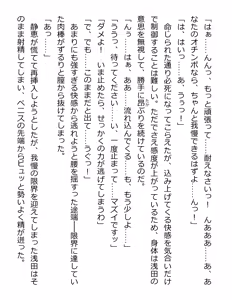 「はぁ……んんっ、もっと頑張って……耐えなさい…！ んあああ……あ、あ
なたのオチンポなら、ちゃんと我慢できるはずよ……んっ…！」
「は、はいっ……あ、うぅっ…！」
命じられた通り必死になってこらえたが、込み上げてくる快感を気合いだけ
で制御することは難しい。ただでさえ感度が上がっているため、身体は浅田の
意思を無視して、勝手に昂ぶりを続けているのだ。
「んうぅ……はぁ、ああ……流れ込んでくる……も、もう少しよ……」
「ううっ、待ってください……い、一度止まって……マズイですッ」
「ダメよ！ いま止めたら、せっかくの力が逃げてしまうわ」
「で、でも……このままだと出て……うぐっ！」
あまりにも強すぎる快感から逃れようと腰を揺すった途端――限界に達してい
た肉棒がずるりと膣から抜けてしまった。
「あっ……」
静恵が慌てて再挿入しようとしたが、我慢の限界を迎えてしまった浅田はそ
のまま射精してしまい、ペニスの先端からビュッと勢いよく精が迸った。